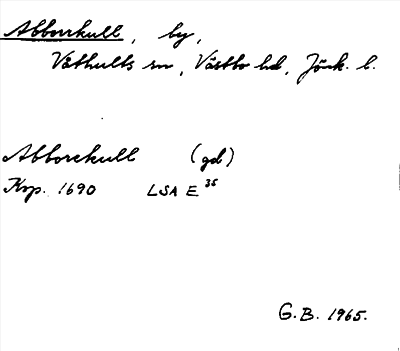 Abborrkull, by,
Våthults sn, Västbo hd, Jönk. l.
Abborekull (gd)
Kop. 1690 LSA E 35
G.B. 1965.